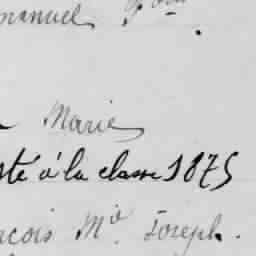 Marie
sté à la classe 1875
ncois Mie Joseph.